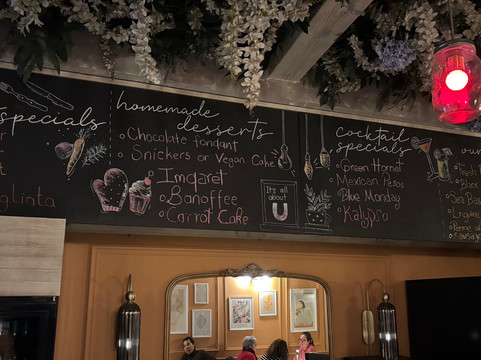 specials
aglinta
homemade
desserts
Chocolate fondant
Snickers or Vegan Cake
Imqaret
Banoffee
Carrot Cake
It's all
about
U
cocktail
specials
Green Hornet
Mexican Pesos
Blue Monday
Kalypso
our
Fresh
Black
Sea Bass